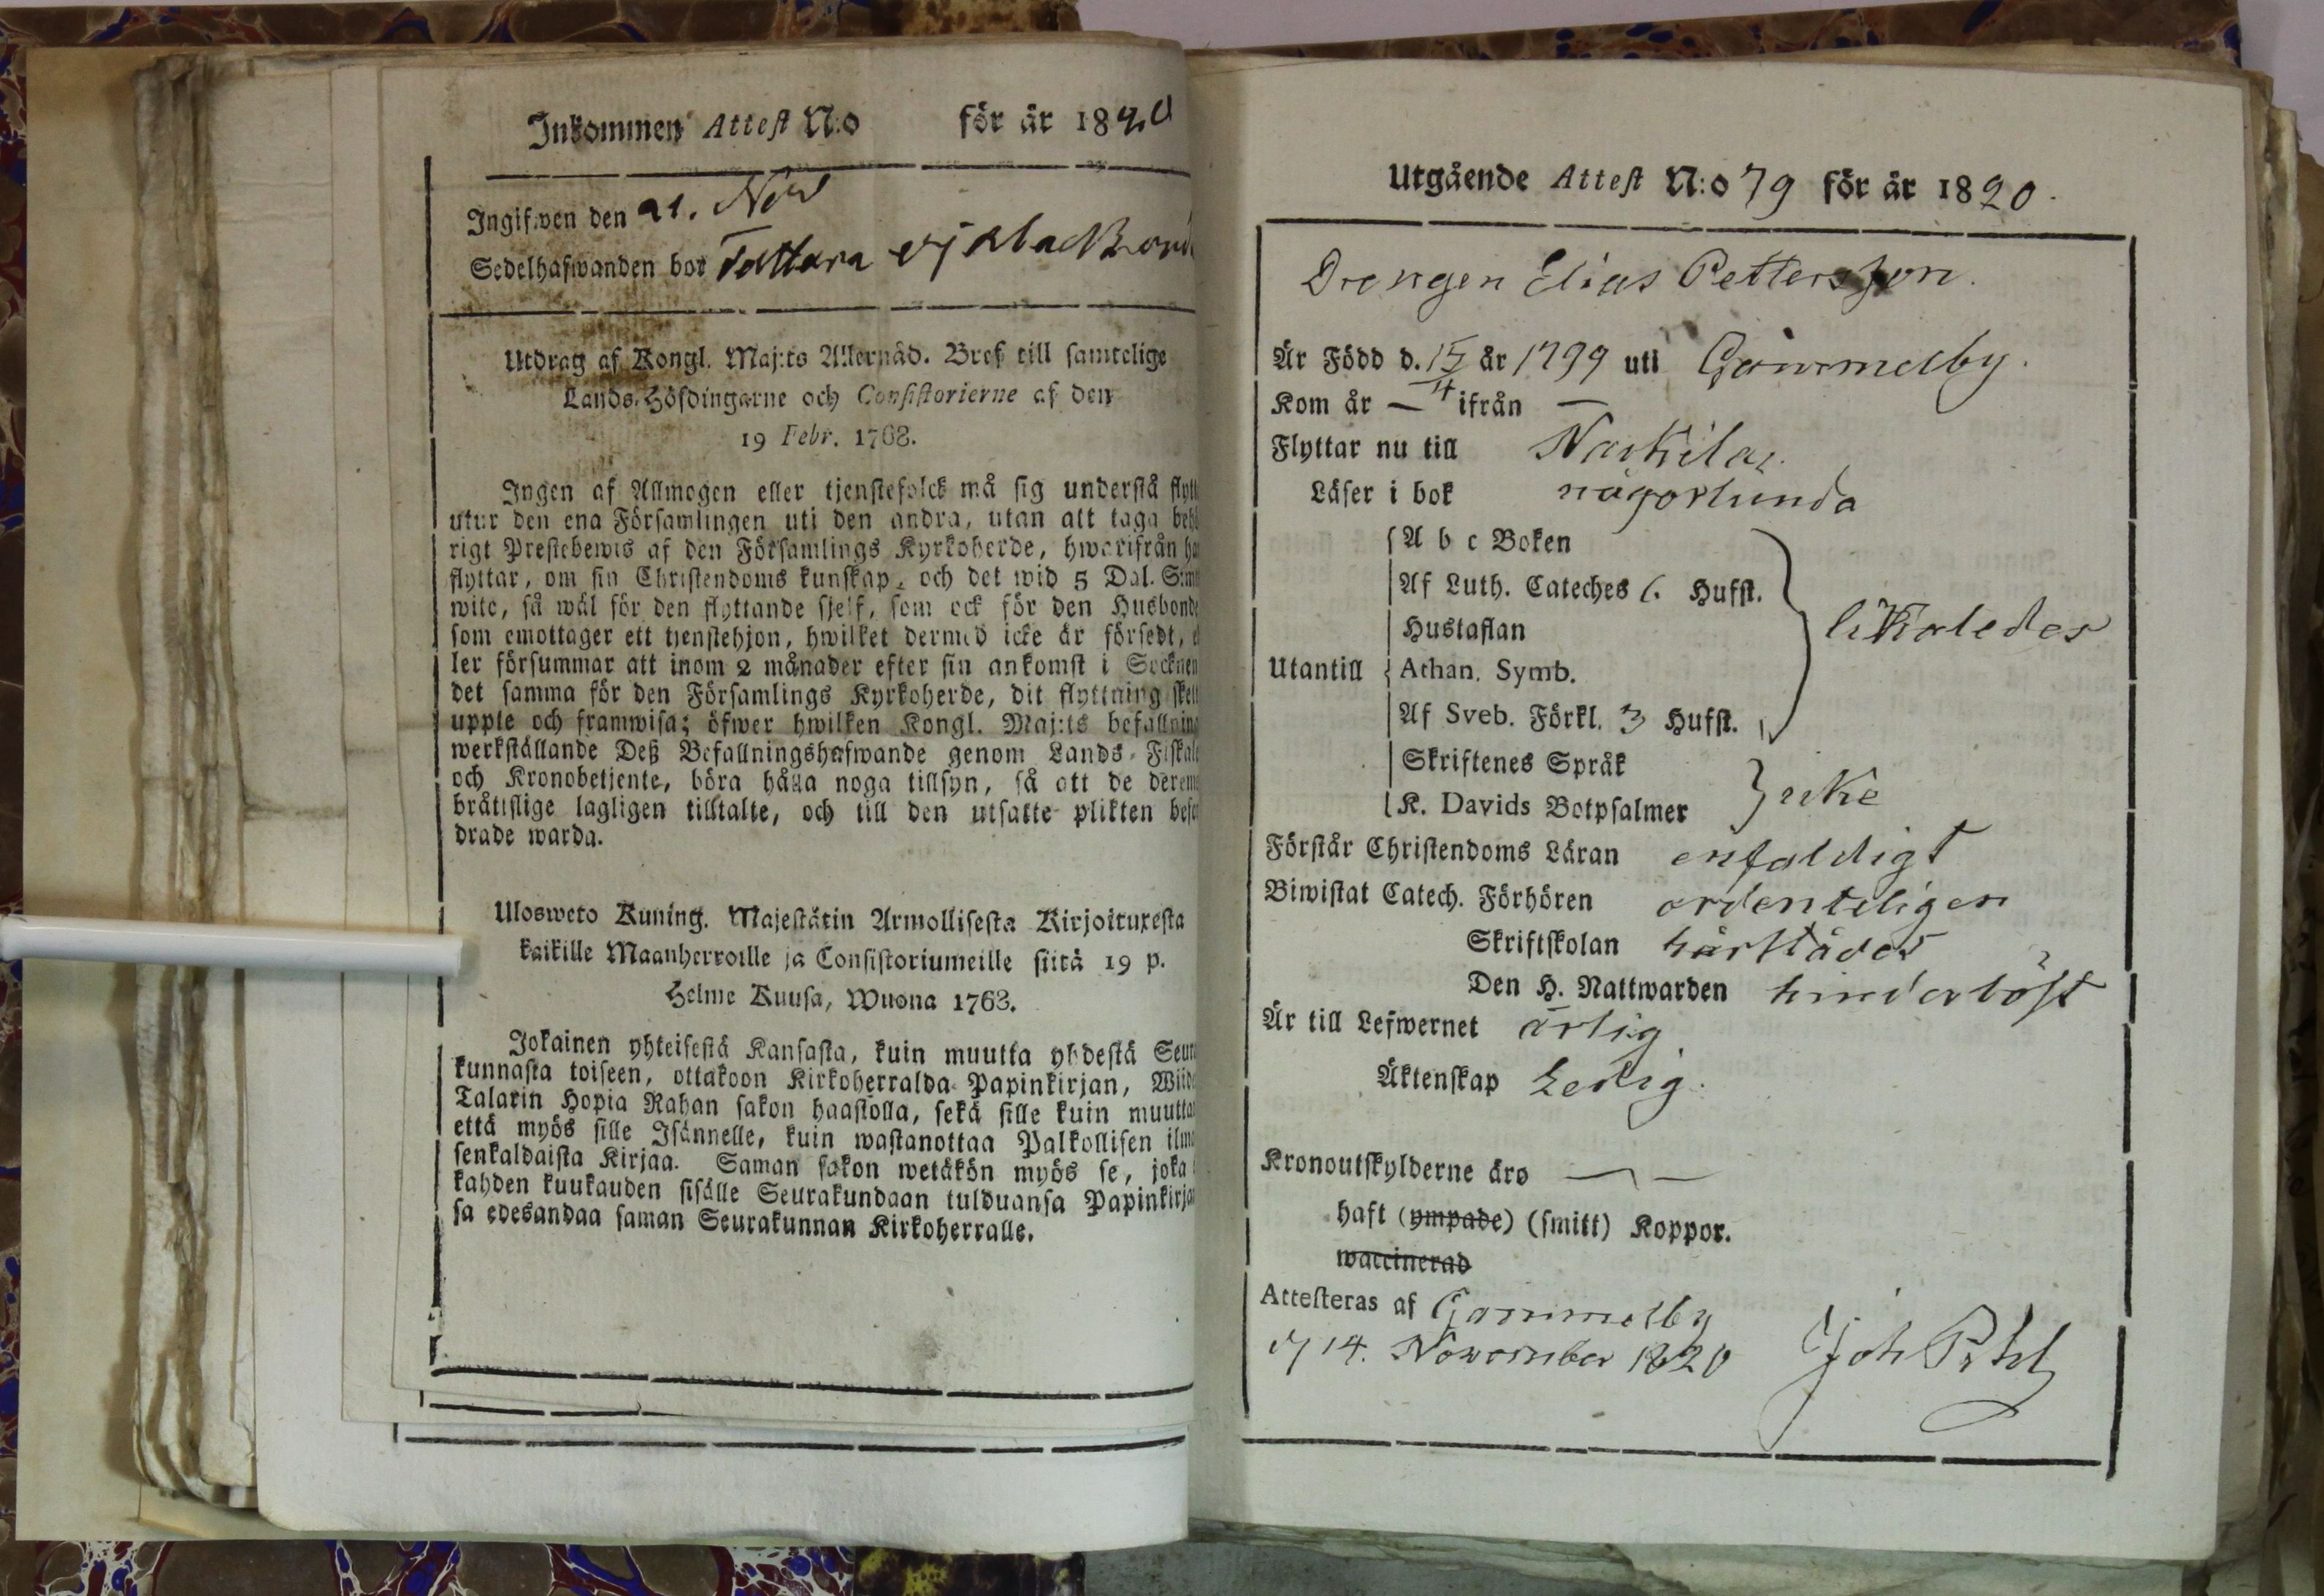 Inkommen Attest N:o för år 1820
Ingifwen den 21. Nov
Sedelhafwanden bor Tattara
Utdrag af Kongl. Maj:ts Allernåd. Bref till samtelige
Lands-Höfdingarne och Consistorierne af den
19 Febr. 1768.
Ingen af Allmogen eller tjenstefolck må sig understå flytt
utur den ena Församlingen uti den andra, utan att taga behö
rigt Prestebewis af den Församlings Kyrkoherde, hwarifrån ha
flyttar, om sin Christendoms kunskap, och det wid 5 Dal. S:m
wite, så wäl för den flyttande sjelf, som ock för den Husbonde
som emottager ett tjenstehjon, hwilket dermed icke är försedt, e
ler försummar att inom 2 månader efter sin ankomst i Socknen
det samma för den Församlings Kyrkoherde, dit flyttning sket
uppte och framwisa; öfwer hwilken Kongl. Maj:ts befallning
werkställande Deß Befallningshafwande genom Lands-Fiskale
och Kronobetjente, böra hålla noga tillsyn, så att de derem
bråttslige lagligen tilltalte, och till den utsatte plikten befo
drade warda.
Ulosweto Kuning. Majestätin Armollisesta Kirjoituxesta
kaikille Maanherroille ja Consistoriumeille siitä 19 p.
Helme Kuusa, Wuona 1768.
Jokainen yhteisestä Kansasta, kuin muutta yhdestä Seura
kunnasta toiseen, ottakoon Kirkoherralda Papinkirjan, Wiide
Talarin Hopia Rahan sakon haastolla, sekä sille kuin muutta
että myös sille Isännelle, kuin wastanottaa Palkollisen ilma
senkaldaista Kirjaa. Saman sakon wetäkön myös se, joka
kahden kuukauden sisälle Seurakundaan tulduansa Papinkirja
sa edesandaa saman Seurakunnan Kirkoherralle.
Utgående Attest N:o 79 för år 1820.
Drengen Elias Pettersson.
Är Född d. 15/4 år 1799 uti Gammelby.
Kom år — ifrån —
Flyttar nu till Narkila.
Läser i bok någorlunda
A b c Boken
Af Luth. Cateches 6. Hufst.
Hustaflan likaledes
Utantill Athan. Symb.
Af Sveb. Förkl. 3 Hufst.
Skriftenes Språk
K. Davids Botpsalmer icke
Förstår Christendoms Läran enfaldigt
Biwistat Catech. Förhören ordenteligen
Skriftskolan härstädes
Den H. Nattwarden hinderlöst
Är till Lefwernet ärlig
Äktenskap Ledig.
Kronoutskylderne äro —
haft (ympade) (smitt) Koppor.
waccinerad
Attesteras af Gammelby
d 14. November 1820